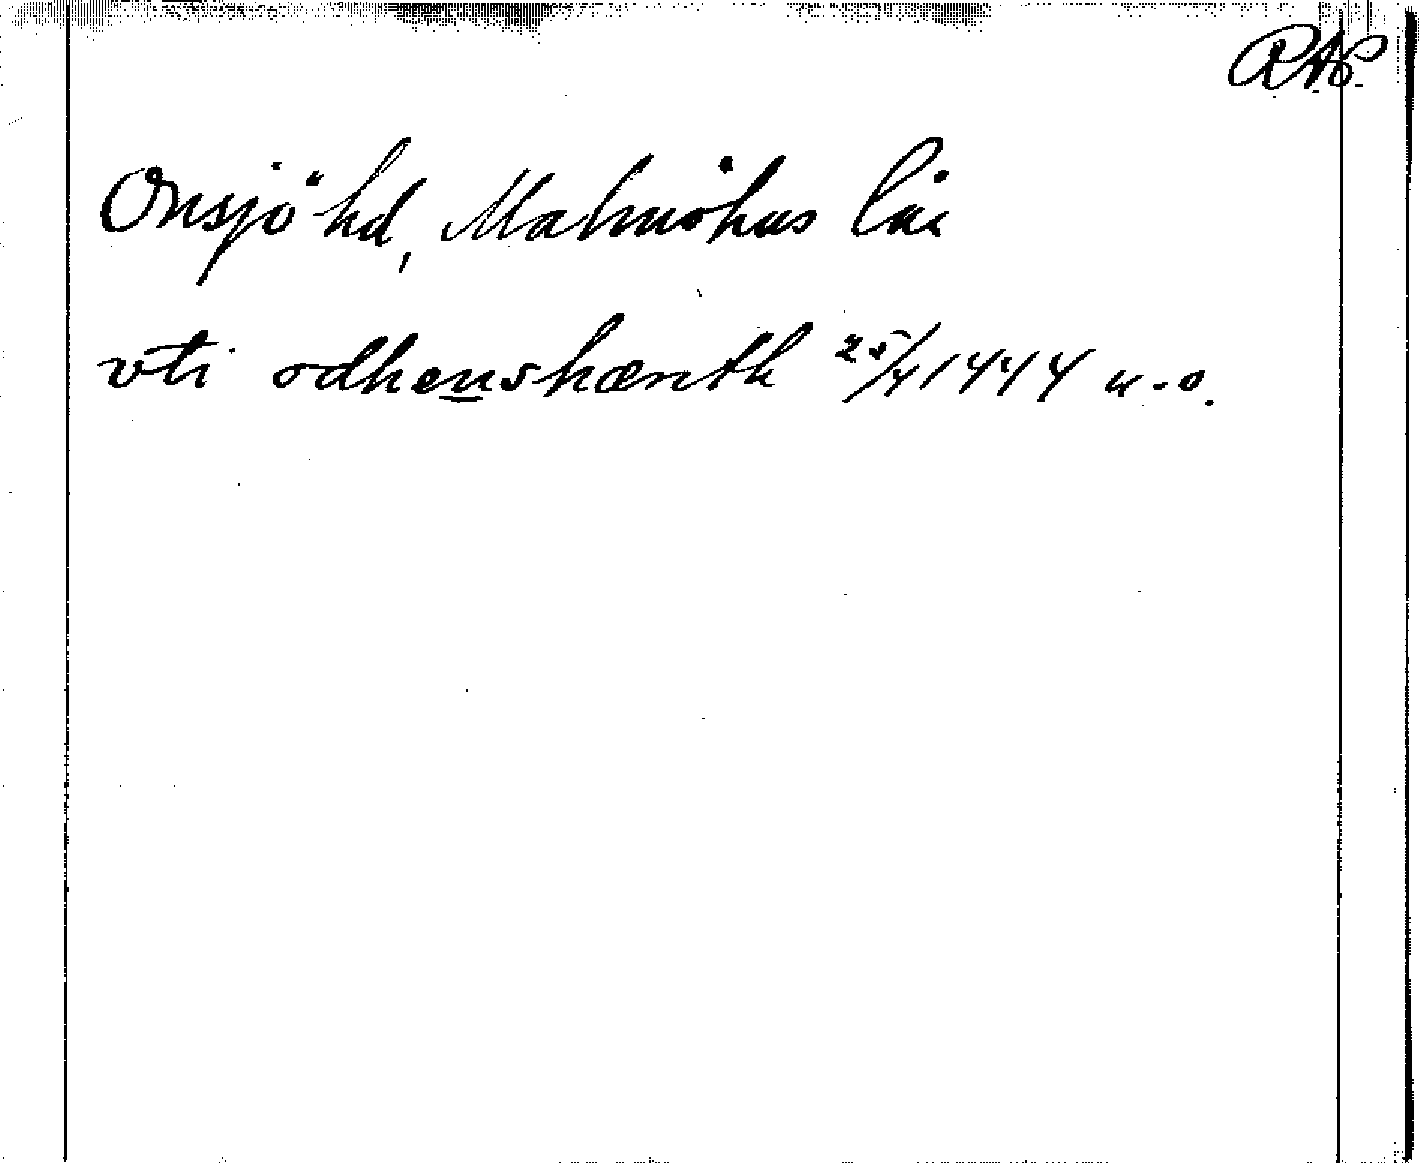 RAP.
Onsjö hd, Malmöhus län
vti odhenshærith 25/4 1444 u.o.